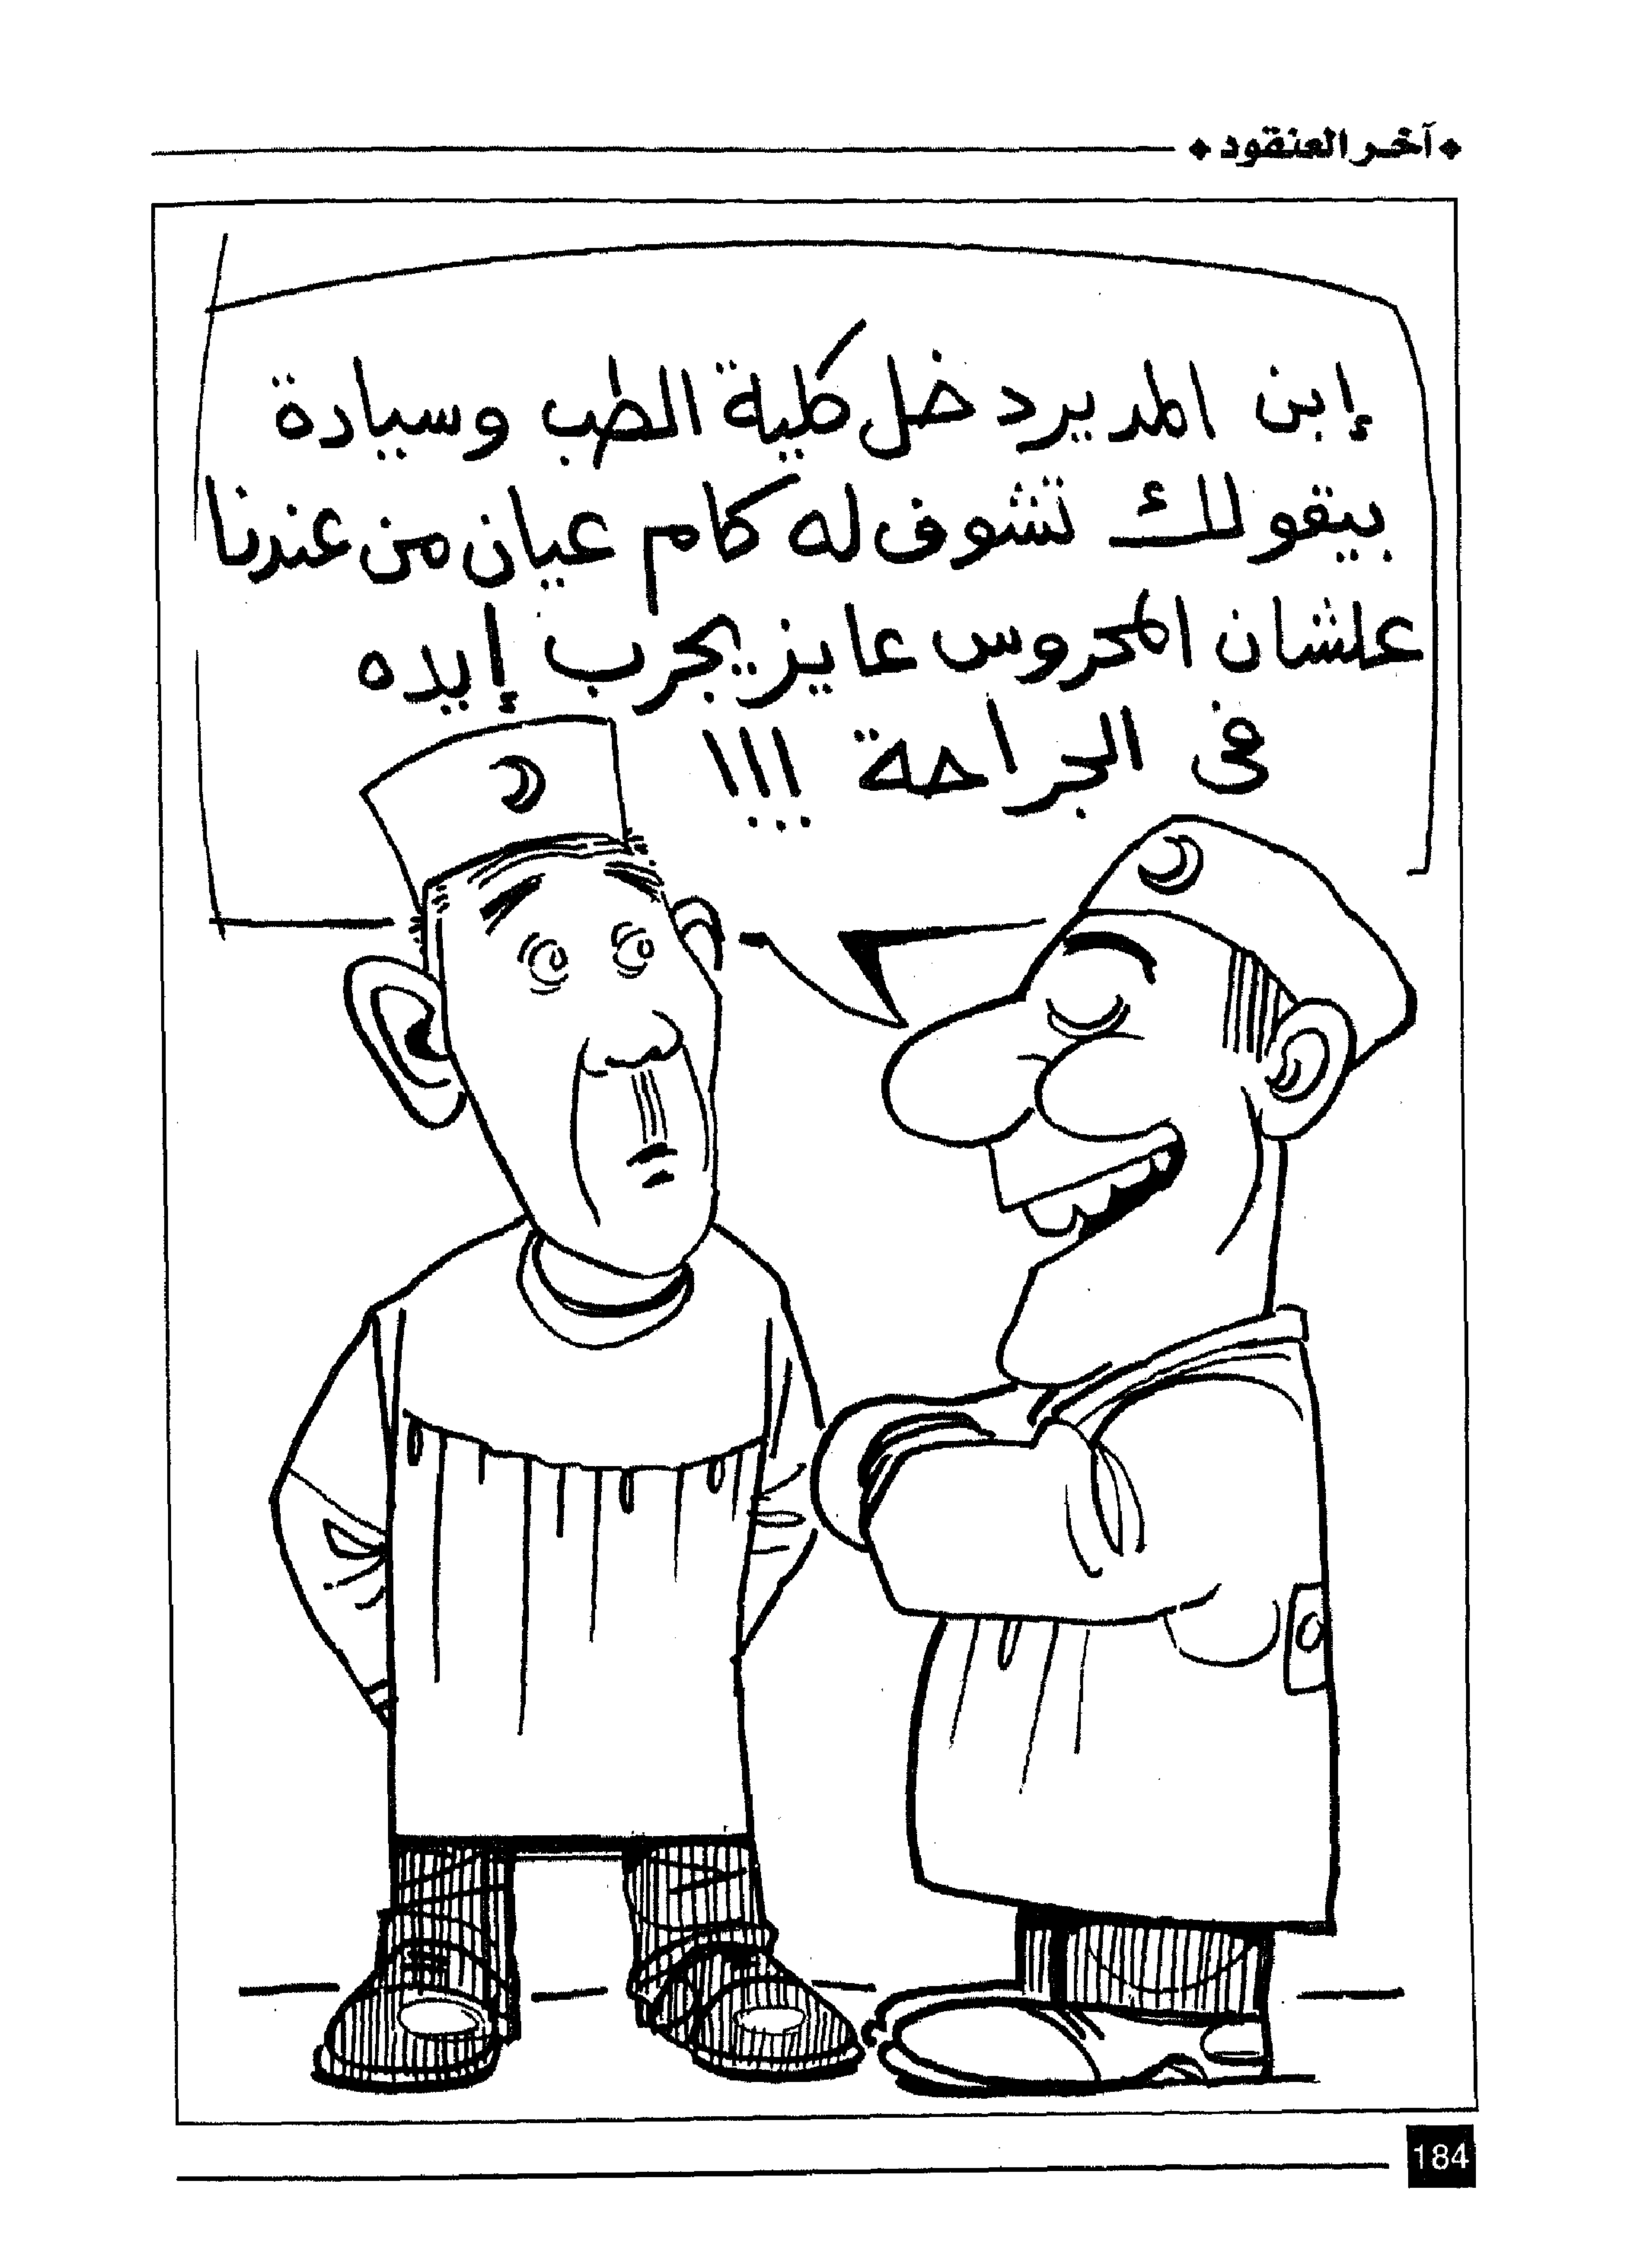 آخر العنقود
إبن المدير دخل كلية الطب وسيادة
بيقولك تشوف له كام عيان من عندنا
علشان المحروس عايز يجرب إيده
فى الجراحة !!!
184